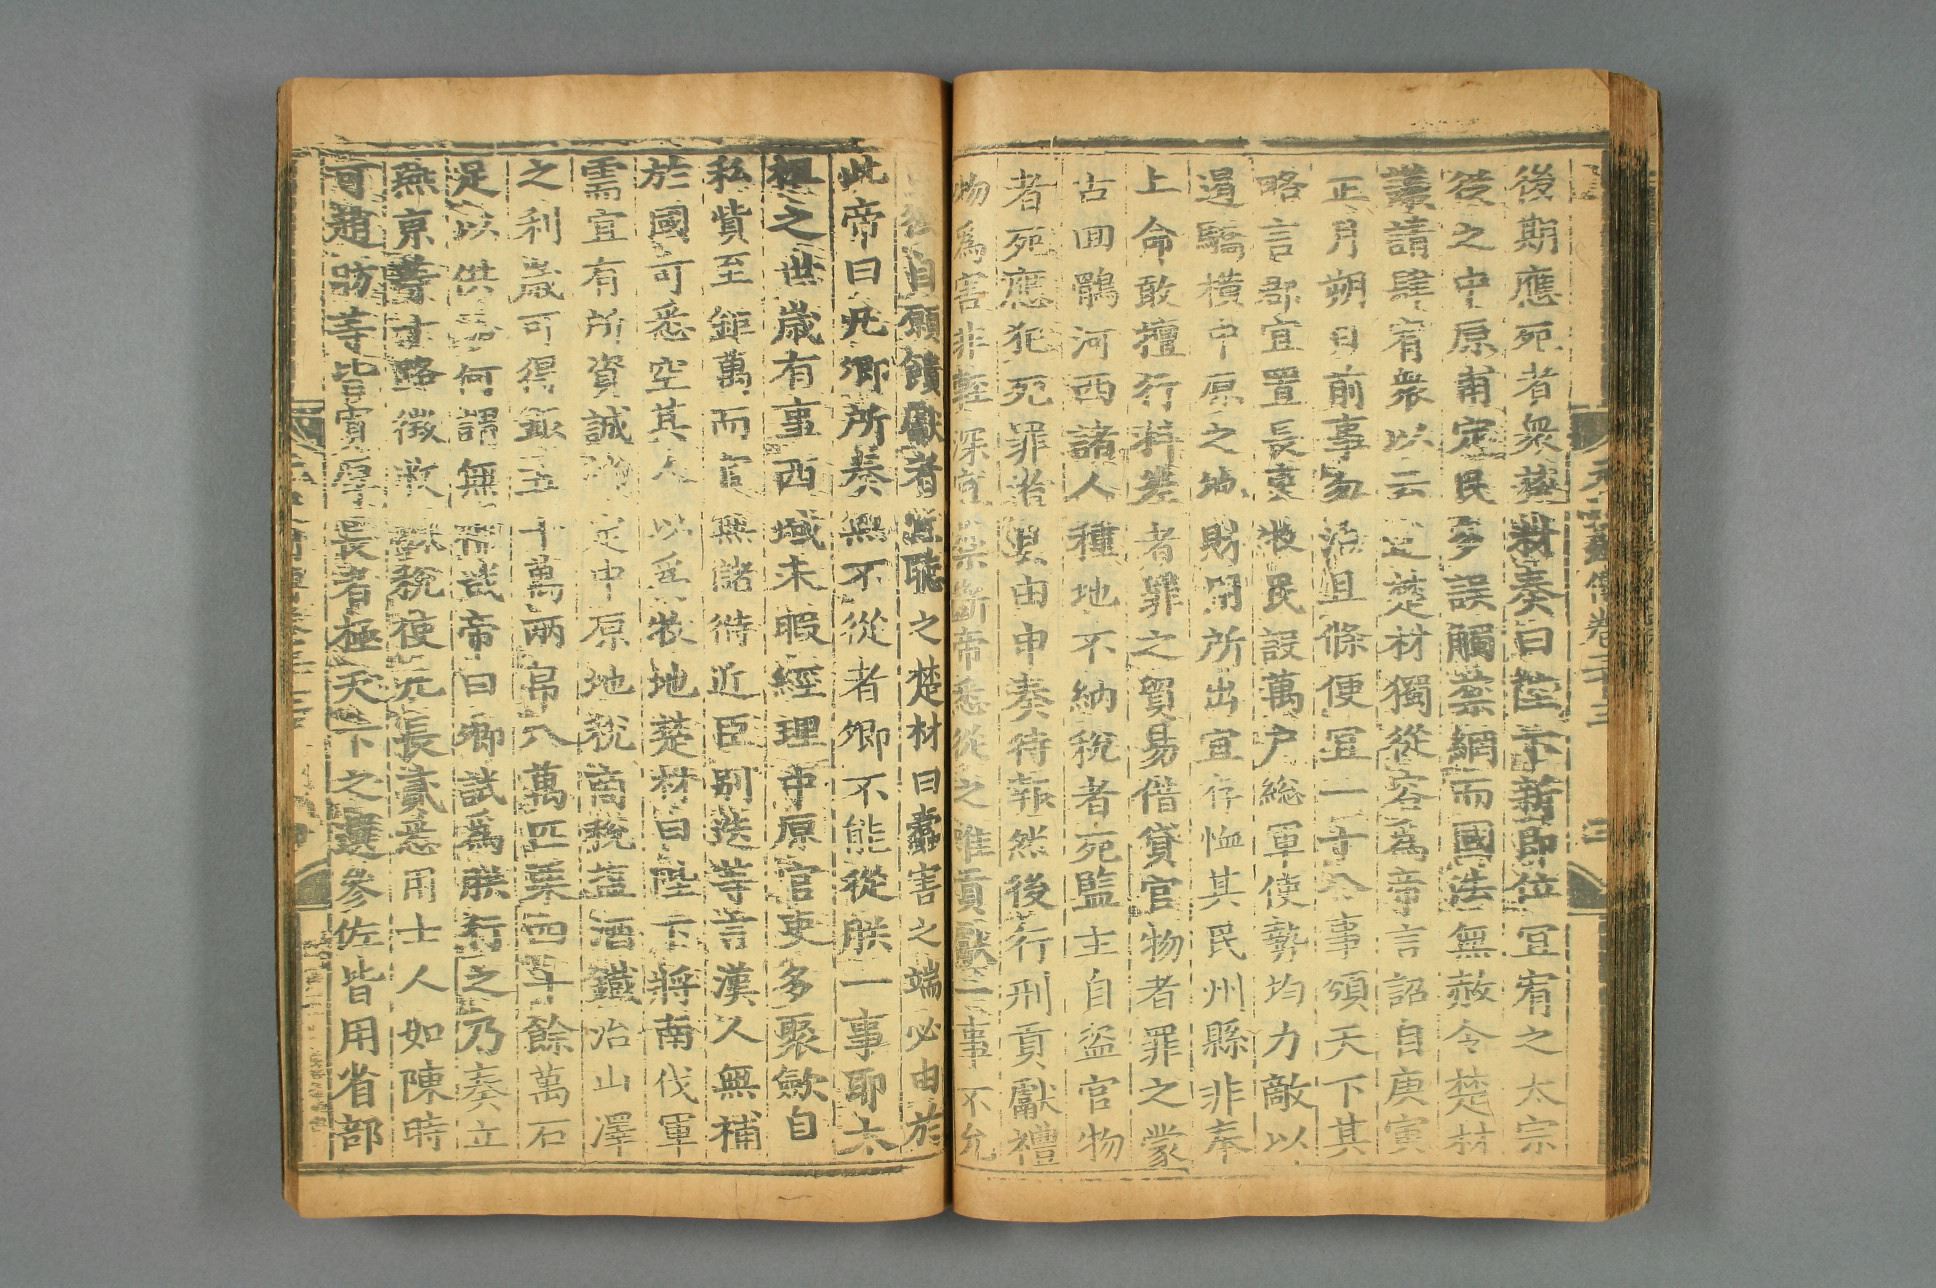 後期應死者衆楚材奏曰陛下新即位宜宥之太宗
從之中原甫定民多誤觸禁網而國法無赦令楚材
議請肆宥衆以云迂楚材獨從容為帝言詔自庚寅
正月朔日前事勿治且條便宜一十八事頒天下其
略言郡宜置長吏牧民設萬户総軍使勢均力敵以
遏驕橫中原之地財用所出宜存恤其民州縣非奉
上命敢擅行科差者罪之貿易借貸官物者罪之蒙
古回鶻河西諸人種地不納稅者死監主自盜官物
者死應犯死罪者具由申奏待報然後行刑貢獻禮
物為害非輕深宜禁斷帝悉從之唯貢獻一事不允
曰彼自願饋獻者宜聽之楚材曰蠹害之端必由於
此帝曰凡卿所奏無不從者卿不能從朕一事耶太
祖之世歲有事西域未暇經理中原官吏多聚歛自
私貲至鉅萬而官無儲偫近臣别迭等言漢人無補
於國可悉空其人以爲牧地楚材曰陛下將南伐軍
需宜有所資誠均定中原地稅商稅塩酒鐵冶山澤
之利歲可得銀五十萬兩帛八萬匹粟四十餘萬石
足以供給何謂無補哉帝曰卿試爲朕行之乃奏立
燕京等十路徵收課稅使凡長貳悉用士人如陳時
可趙昉等皆寬厚長者極天下之選參佐皆用省部